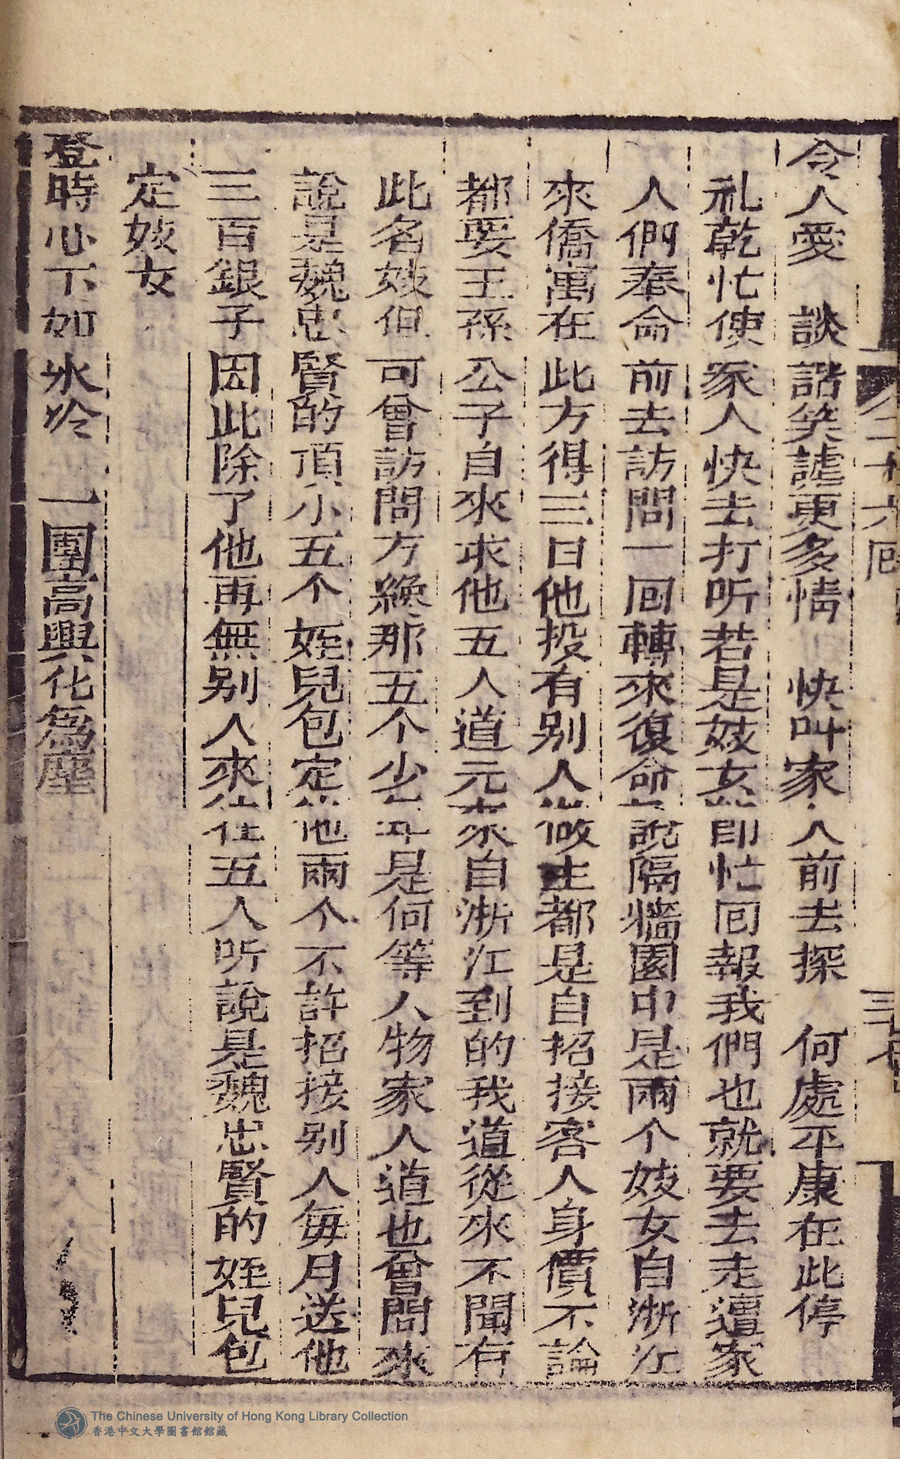 令人愛　談諧笑謔更多情　快叫家人前去探　何處平康在此停
礼乾忙使家人快去打听若是妓女即忙囘報我們也就要去走遭家
人們奉命前去訪問一囘轉來復命說隔牆園中是兩个妓女自淅江
來僑寓在此方得三日他投有别人做主都是自招接客人身價不論
都要王孫公子自來求他五人道元來自淅江到的我道從來不聞有
此名妓但可曾訪問方纔那五个少年是何等人物家人道也曾問來
說是魏忠賢的頂小五个姪兒包定他兩个不許招接别人每月送他
三百銀子因此除了他再無别人來往五人听說是魏忠賢的姪兒包
定妓女
登時心下如氷冷　一團高興化為塵
二十六囘
The Chinese University of Hong Kong Library Collection
香港中文大學圖書館館藏